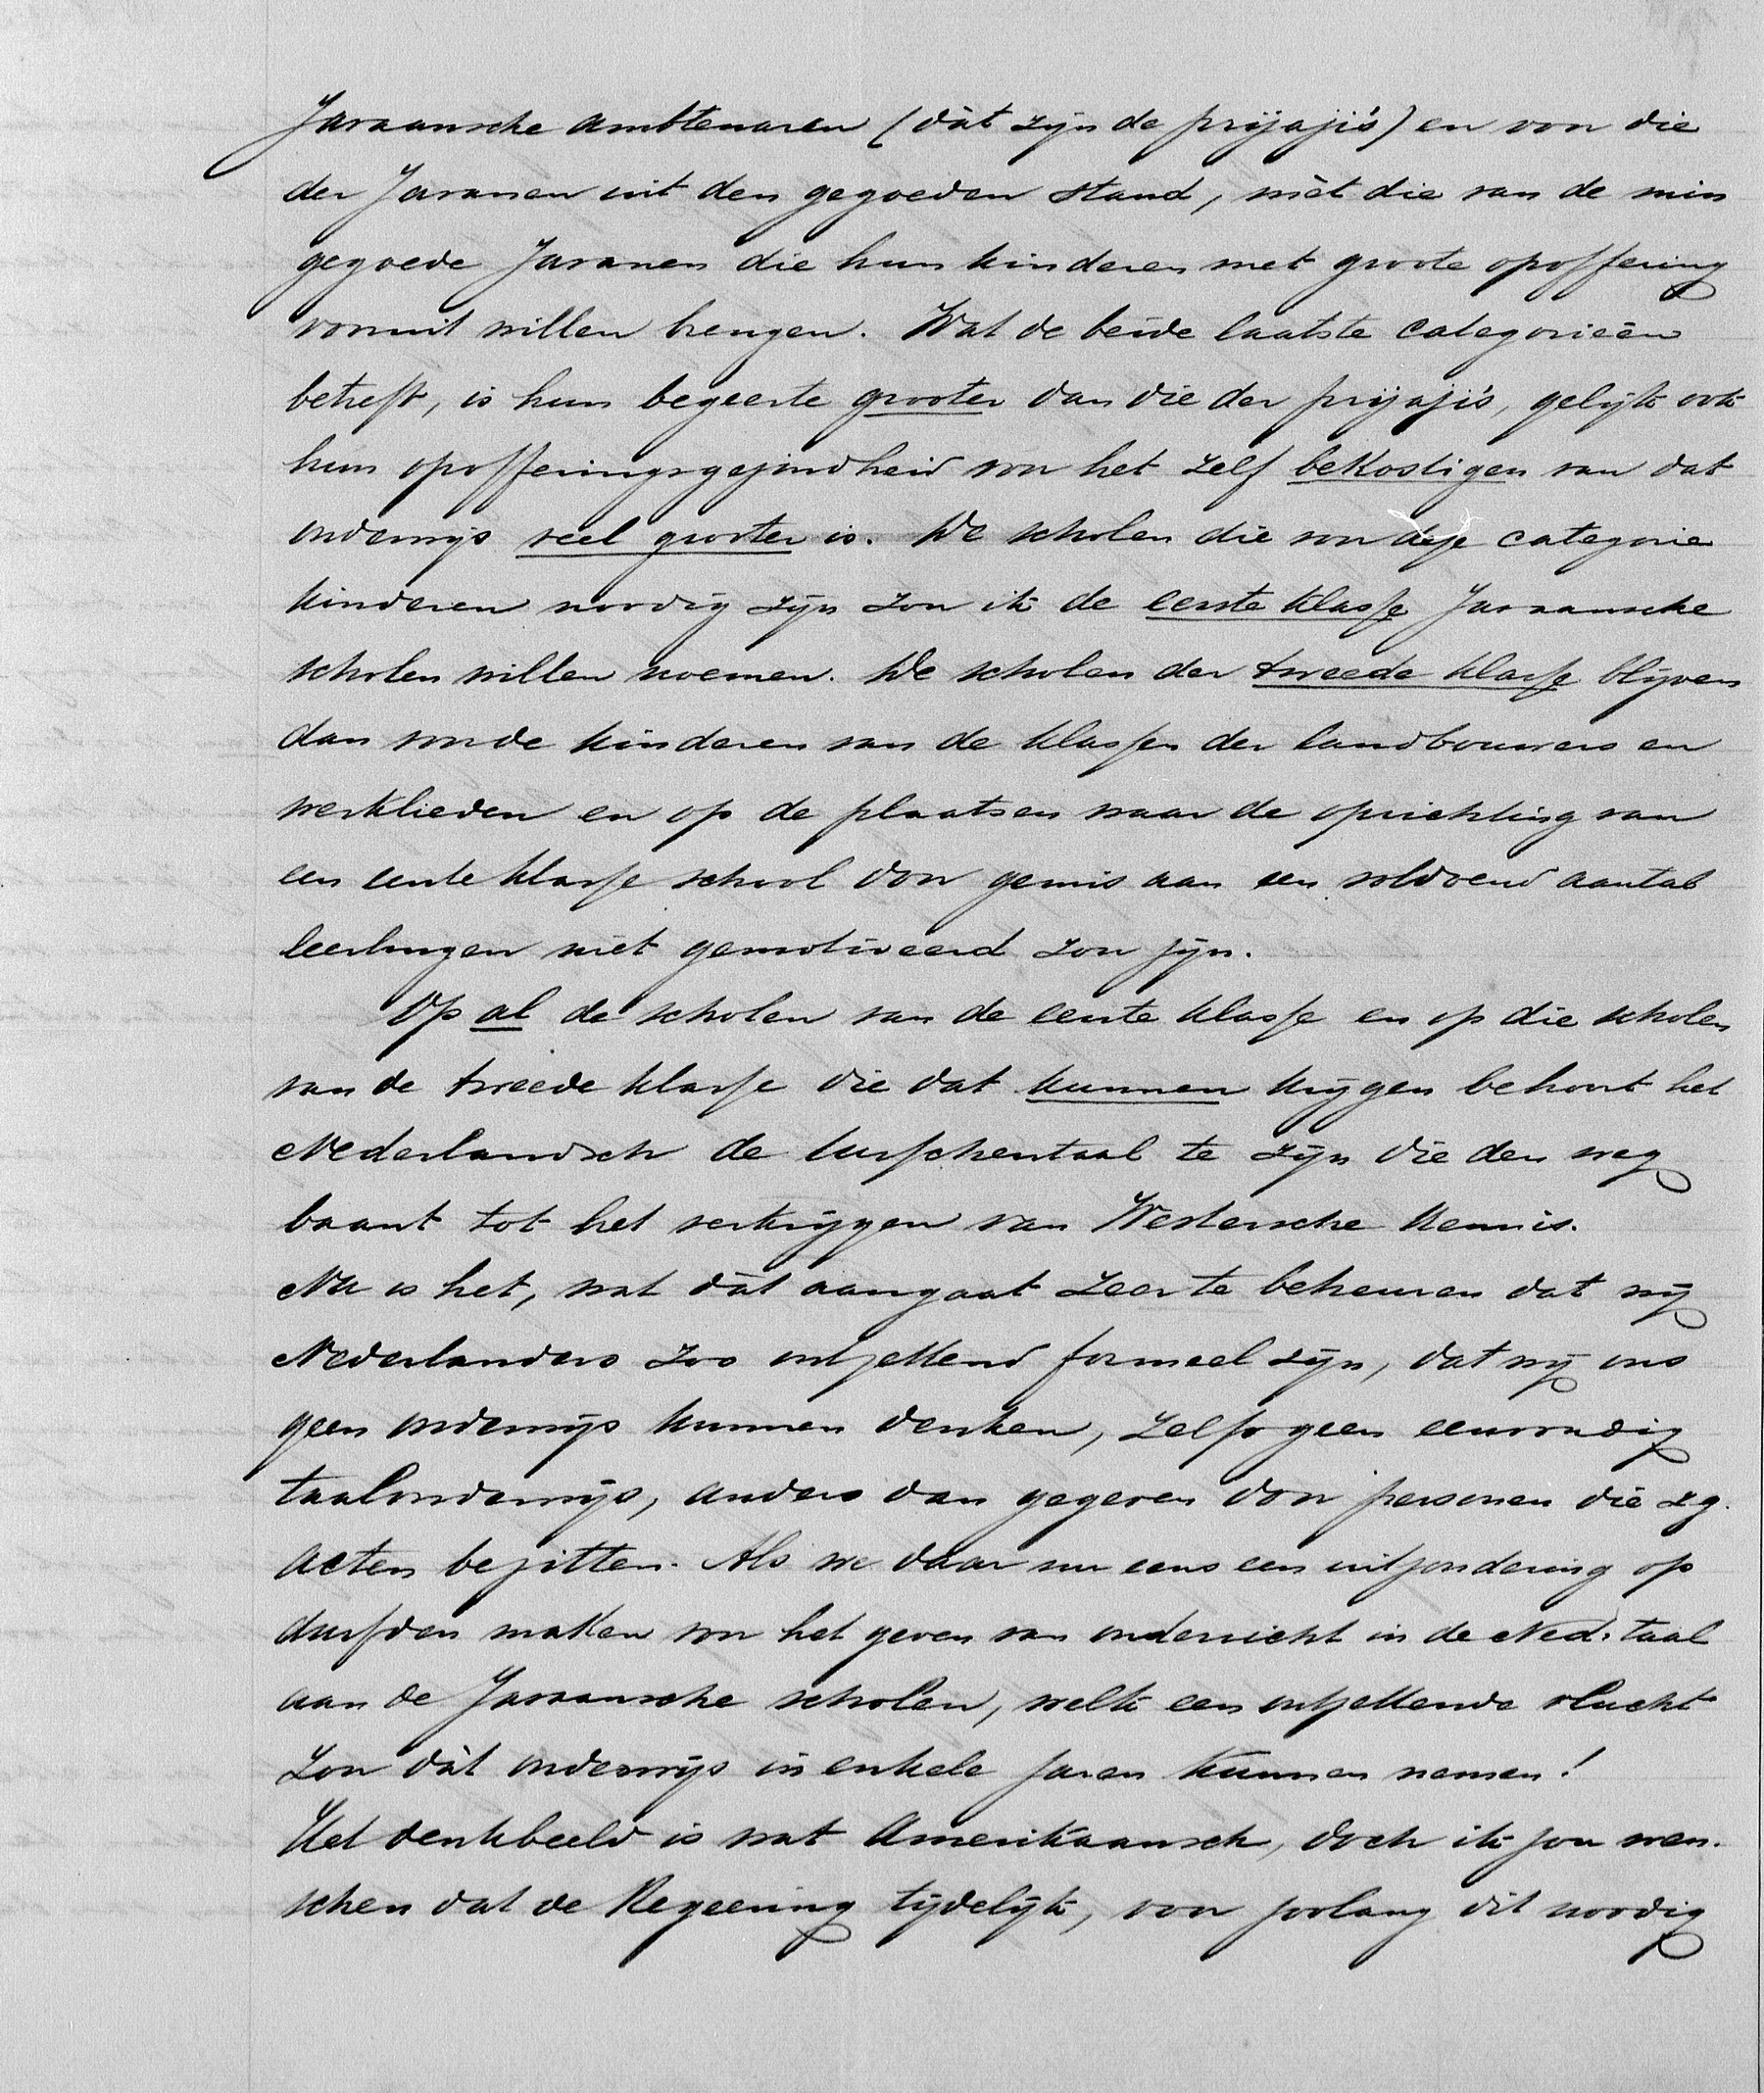 Javaansche ambtenaren (dàt zijn de prijaji's) en voor die
der Javanen uit den gegoeden stand, mèt die van de min
gegoede Javanen die hun kinderen met groote opoffering
vooruit willen brengen. Wat de beide laatste categorieën
betreft, is hun begeerte grooter dan die der prijaji's, gelijk ook
hun opofferingsgezindheid voor het zelf bekostigen van dat
onderwijs veel grooter is. De scholen die voor deze categorie
kinderen noodig zijn zou ik de eerste klasse Javaansche
scholen willen noemen. De scholen der tweede klasse blijven
dan voor de kinderen van de klassen der landbouwers en
werklieden en op de plaatsen waar de oprichting van
een eerste klasse school door gemis aan een voldoend aantal
leerlingen niet gemotiveerd zou zijn.
Op al de scholen van de eerste klasse en op die scholen
van de tweede klasse die dat kunnen krijgen behoort het
Nederlandsch de tusschentaal te zijn die den weg
baant tot het verkrijgen van Westersche kennis.
Nu is het, wat dàt aangaat zeer te betreuren dat wij
Nederlanders zoo ontzettend formeel zijn, dat wij ons
geen onderwijs kunnen denken, zelfs geen eenvoudig
taalonderwijs, anders dan gegeven door personen die zg.
acten bezitten. Als we daar nu eens een uitzondering op
durfden maken voor het geven van onderricht in de Ned. taal
aan de Javaansche scholen, welk een ontzettende vlucht
zou dàt onderwijs in enkele jaren kunnen nemen!
Het denkbeeld is wat Amerikaansch, doch ik zou wen-
schen dat de Regeering tijdelijk, voor zoolang dit noodig